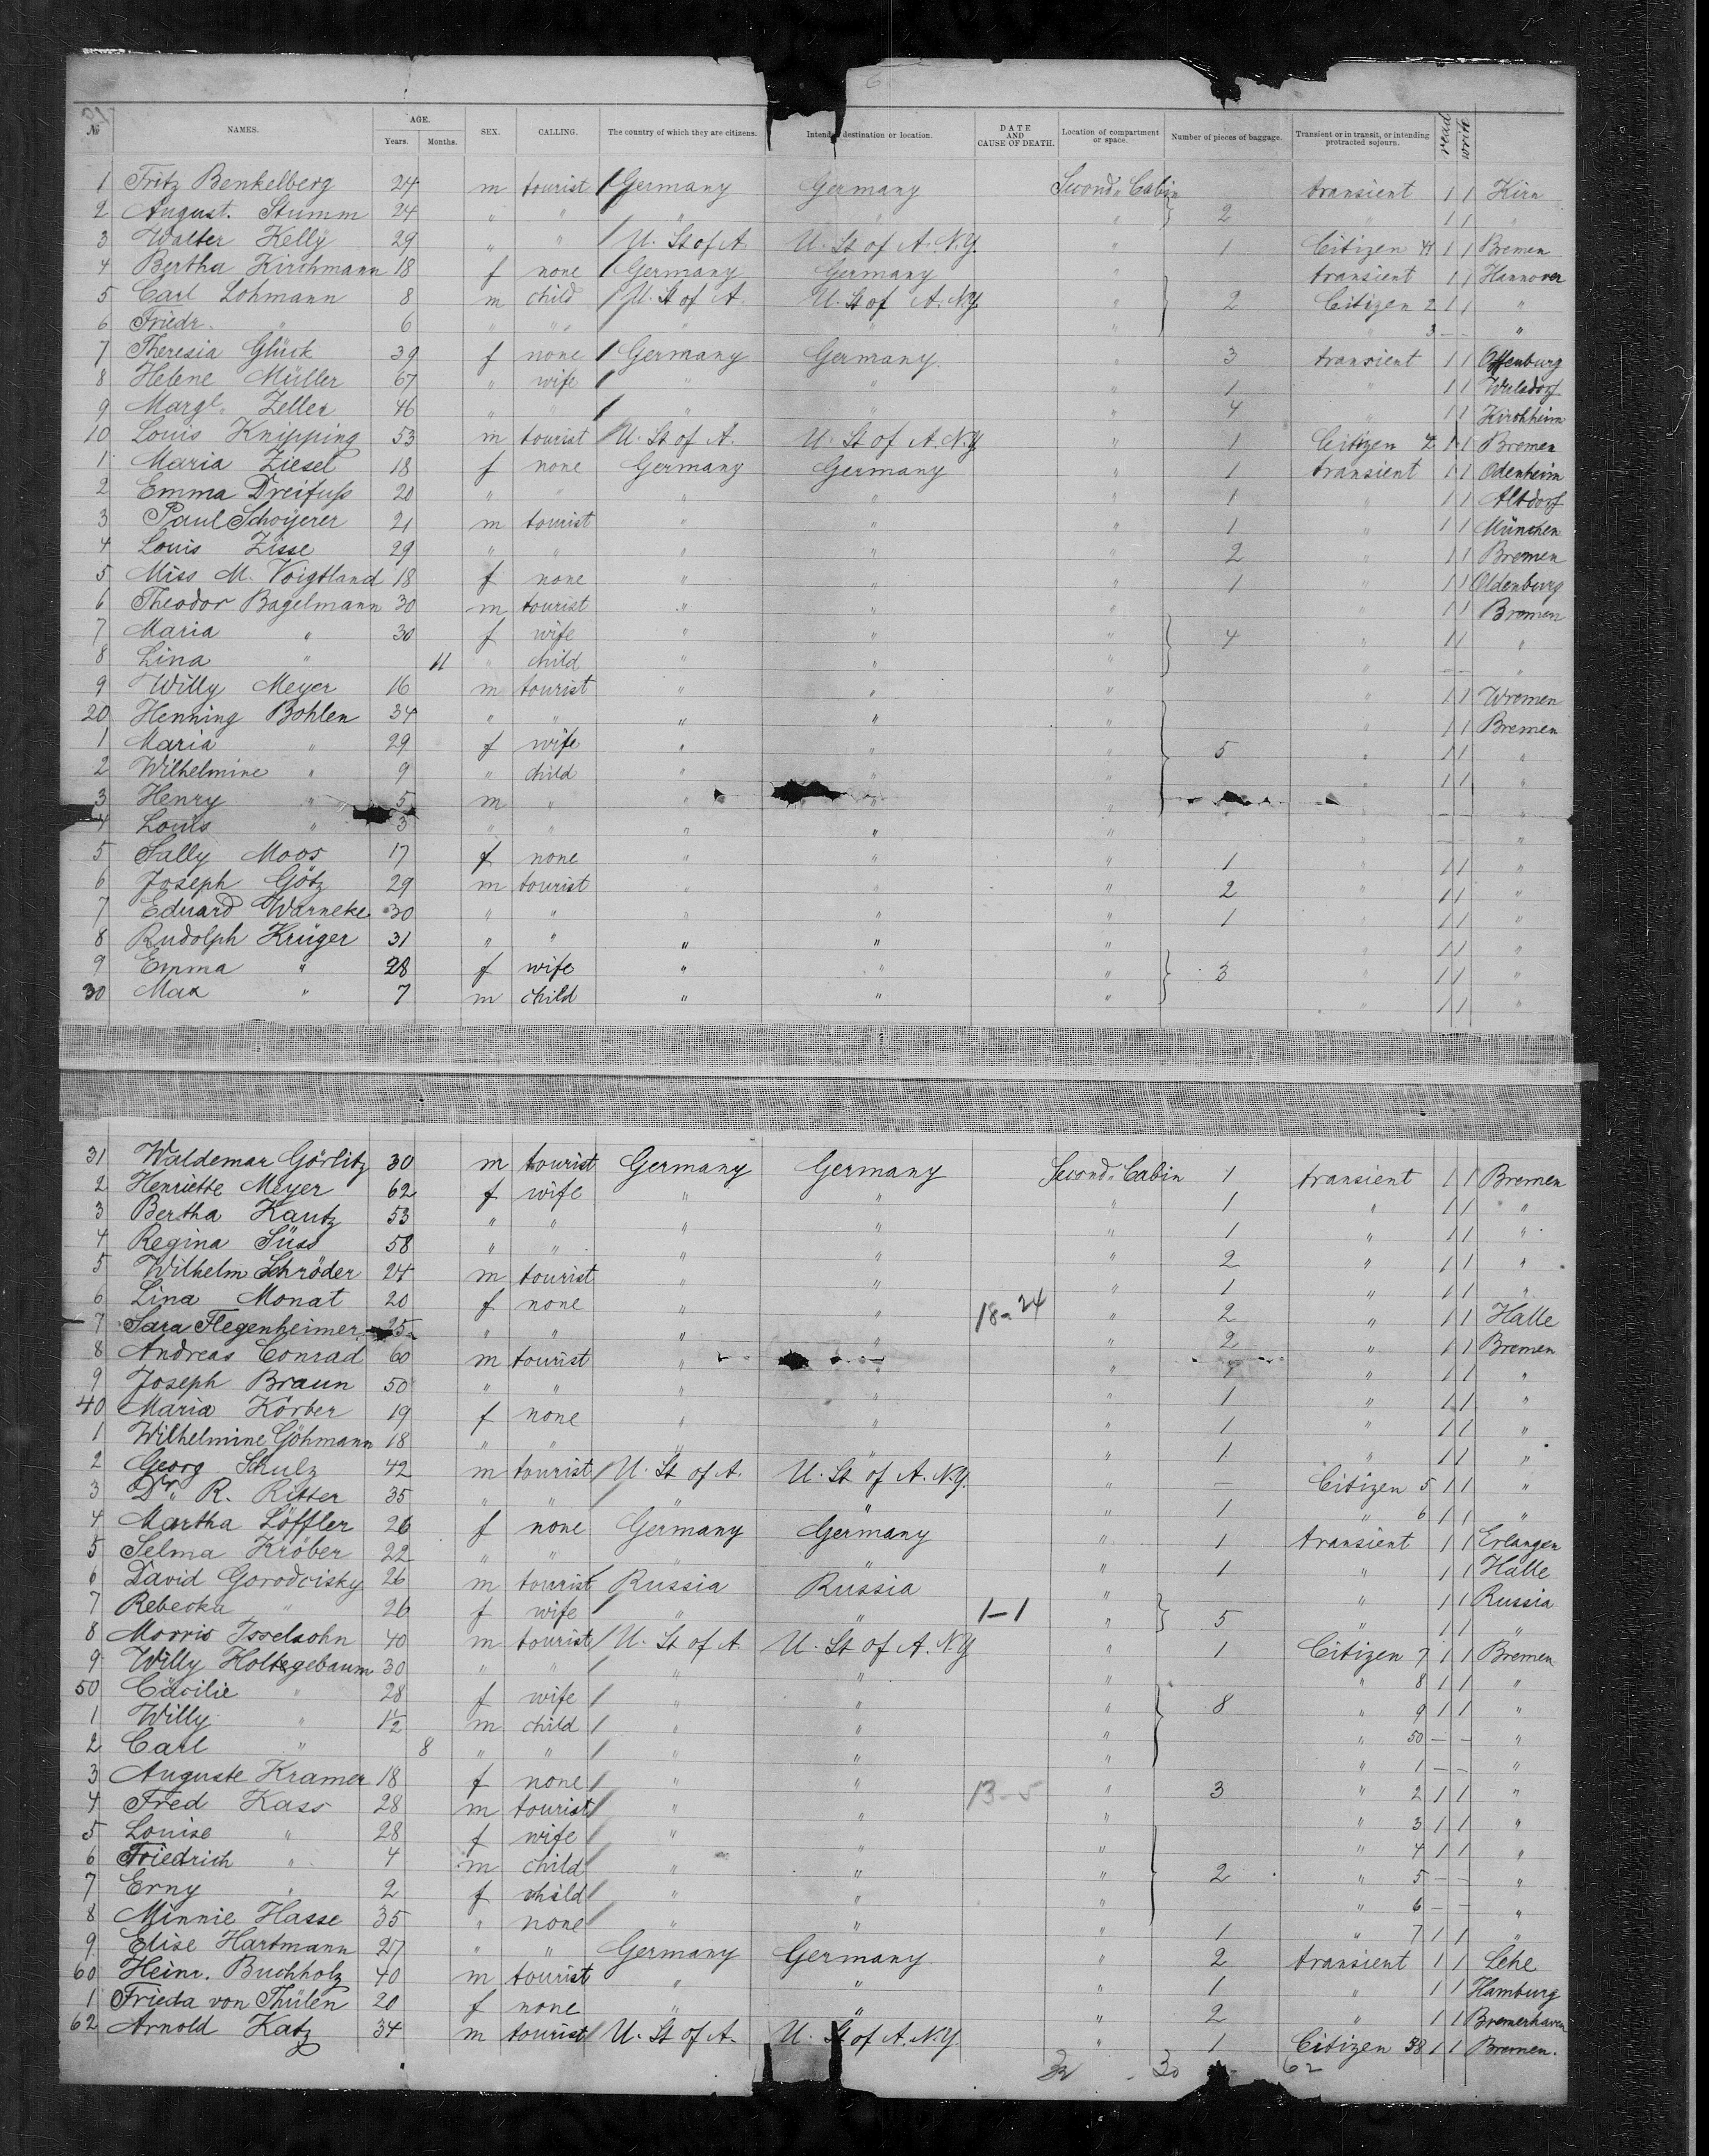 6
№ NAMES. AGE. Years. Months. SEX. CALLING. The country of which they are citizens. Intended destination or location. DATE AND CAUSE OF DEATH. Location of compartment or space. Number of pieces of baggage. Transient or in transit, or intending protracted sojourn. read write
1 Fritz Benkelberg 24 m tourist Germany Germany Second Cabin transient 1 1 Kirn
2 August. Stumm 24 " " " " " } 2 " 1 1 "
3 Walter Kelly 29 " " U. St of A. U. St of A. N.Y. " 1 Citizen 41 1 1 Bremen
4 Bertha Kirchmann 18 f none Germany Germany " transient 1 1 Hannover
5 Carl Lohmann 8 m child U. St of A. U. St of A. N.Y. " } 2 Citizen 2 1 1 "
6 Friedr. " 6 " " " " " " 3 — — "
7 Theresia Glück 39 f none Germany Germany. " 3 transient 1 1 Offenburg
8 Helene Müller 67 " wife " " " 1 " 1 1 Wulsdorf
9 Margt. Zeller 46 " " " " " 4 " 1 1 Kirchheim
10 Louis Knipping 53 m tourist U. St of A. U. St of A. N.Y. " 1 Citizen 4 1 1 Bremen
1 Maria Ziesel 18 f none Germany Germany " 1 transient 1 1 Odenheim
2 Emma Dreifuss 20 " " " " " 1 " 1 1 Altdorf
3 Paul Schoyerer 21 m tourist " " " 1 " 1 1 München
4 Louis Zisse 29 " " " " " 2 " 1 1 Bremen
5 Miss M. Voigtland 18 f none " " " 1 " 1 1 Oldenburg
6 Theodor Bagelmann 30 m tourist " " " " 1 1 Bremen
7 Maria " 30 f wife " " " } 4 " 1 1 "
8 Lina " 11 " child " " " " — — "
9 Willy Meyer 16 m tourist " " " " 1 1 Wremen
20 Henning Bohlen 34 " " " " " " 1 1 Bremen
1 Maria " 29 f wife " " " } 5 " 1 1 "
2 Wilhelmine " 9 " child " " " " 1 1 "
3 Henry " 5 m " " " " " — — "
4 Louis " 3 " " " " " " — — "
5 Sally Moos 17 f none " " " 1 " 1 1 "
6 Joseph Götz 29 m tourist " " " 2 " 1 1 "
7 Eduard Warneke 30 " " " " " 1 " 1 1 "
8 Rudolph Krüger 31 " " " " " " 1 1 "
9 Emma " 28 f wife " " " } 3 " 1 1 "
30 Max " 7 m child " " " " 1 1 "
31 Waldemar Görlitz 30 m tourist Germany Germany Second Cabin 1 transient 1 1 Bremen
2 Henriette Meyer 62 f wife " " " 1 " 1 1 "
3 Bertha Kautz 53 " " " " " 1 " 1 1 "
4 Regina Süss 58 " " " " " 2 " 1 1 "
5 Wilhelm Schröder 24 m tourist " " " 1 " 1 1 "
6 Lina Monat 20 f none " " 18-24 " 2 " 1 1 Halle
7 Sara Flegenheimer 25 " " " " " 2 " 1 1 Bremen
8 Andreas Conrad 60 m tourist " " " 1 " 1 1 "
9 Joseph Braun 50 " " " " " 1 " 1 1 "
40 Maria Körber 19 f none " " " 1 " 1 1 "
1 Wilhelmine Göhmann 18 " " " " " 1 " 1 1 "
2 Georg Schulz 42 m tourist U. St of A. U. St of A. N.Y. " — Citizen 5 1 1 "
3 Dr. R. Ritter 35 " " " " " 1 " 6 1 1 "
4 Martha Löffler 26 f none Germany Germany " 1 transient 1 1 Erlangen
5 Selma Kröber 22 " " " " " 1 " 1 1 Halle
6 David Gorodcisky 26 m tourist Russia Russia " 1 1 Russia
7 Rebecka " 26 f wife " " 1-1 " } 5 " 1 1 "
8 Morris Isselsohn 40 m tourist U. St of A. U. St of A. N.Y. " 1 Citizen 7 1 1 Bremen
9 Willy Holtegebaum 30 " " " " " " 8 1 1 "
50 Cäcilie " 28 f wife " " " } 8 " 9 1 1 "
1 Willy " 1½ m child " " " " 50 — — "
2 Carl " 8 " " " " " " 1 — — "
3 Auguste Kramer 18 f none " " 13-5 " 3 " 2 1 1 "
4 Fred Kass 28 m tourist " " " " 3 1 1 "
5 Louise " 28 f wife " " " " 4 1 1 "
6 Friedrich " 4 m child " " " } 2 " 5 — — "
7 Erny " 2 f child " " " " 6 — — "
8 Minnie Hasse 35 " none " " " 1 " 7 1 1 "
9 Elise Hartmann 27 " " Germany Germany " 2 transient 1 1 Lehe
60 Heinr. Buchholz 40 m tourist " " " 1 " 1 1 Hamburg
1 Frieda von Thülen 20 f none " " " 2 " 1 1 Bremerhaven
62 Arnold Katz 34 m tourist U. St of A. U. St of A. N.Y. " 1 Citizen 58 1 1 Bremen.
32 30 62